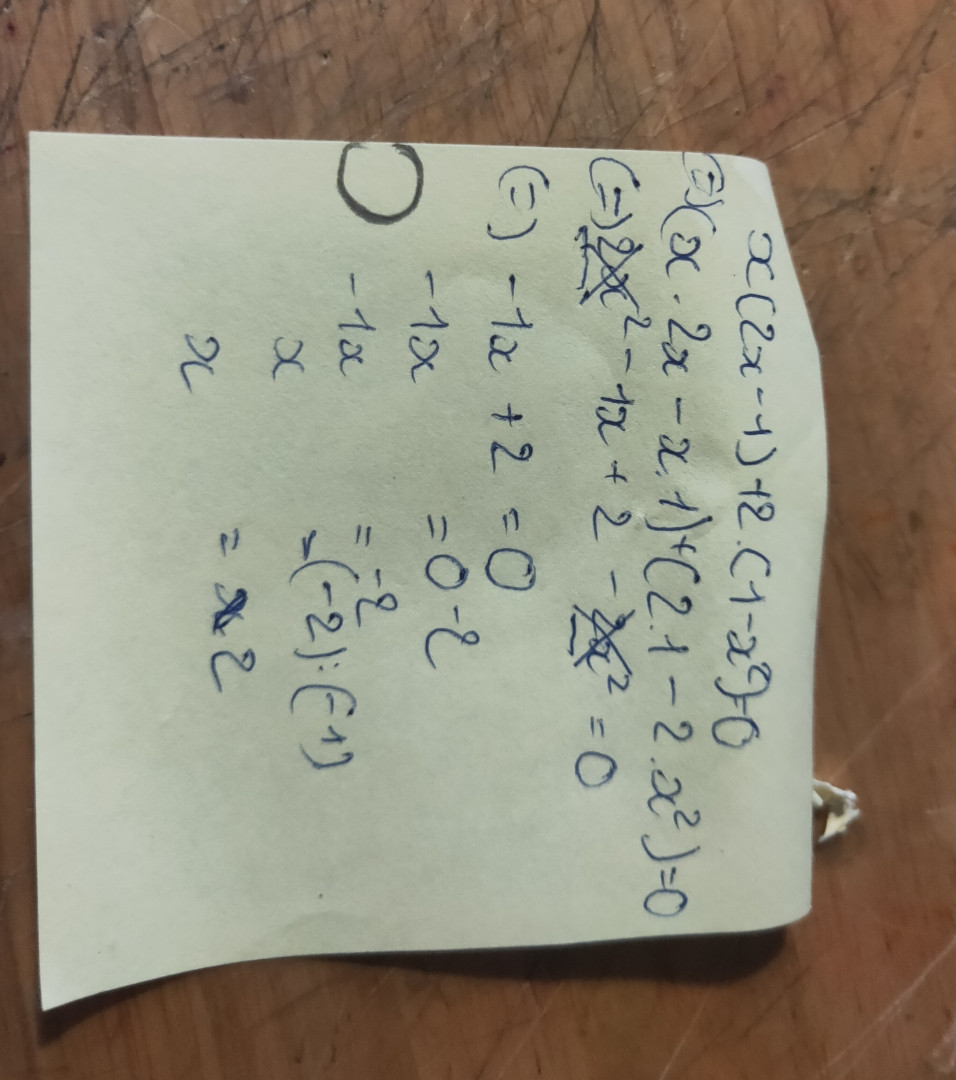 x(2x-1)+2.(1-x²)=0
(=)(x.2x-x.1)+(2.1-2.x²)=0
(=)2x²-1x+2-2x²=0
(=) -1x+2=0
-1x =0-2
-1x =-2
x =(-2):(-1)
x = 2